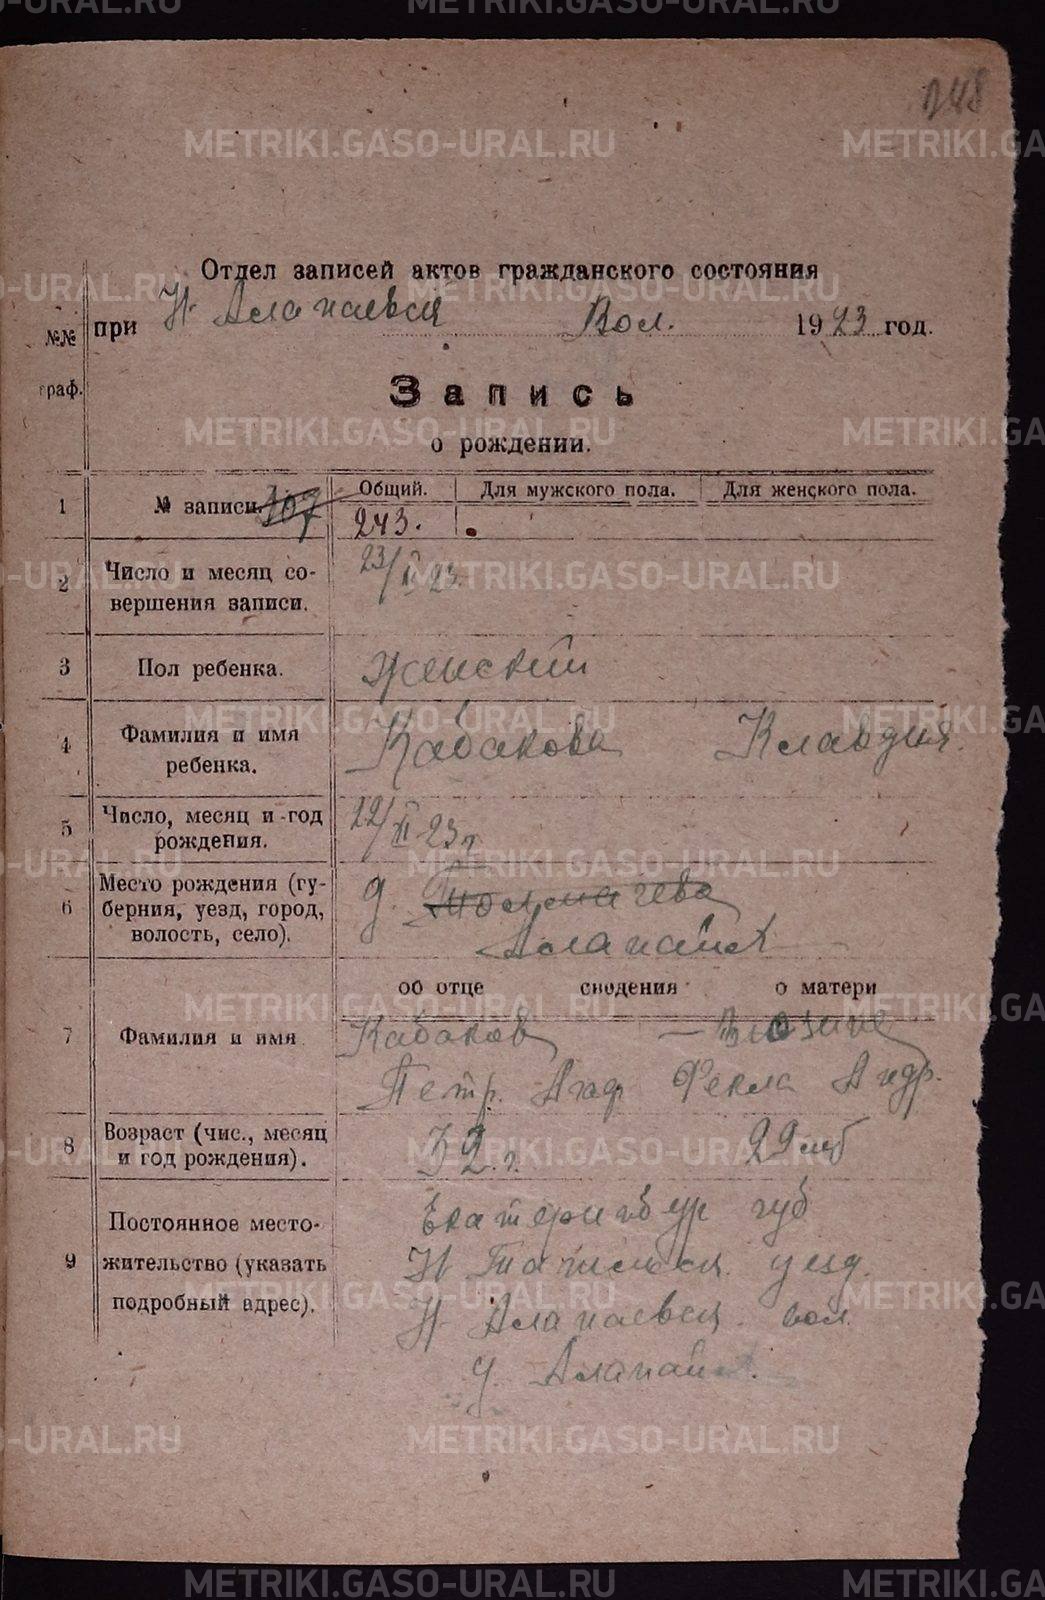 248
Отдел записей актов гражданского состояния
№№ граф.
при Н Алапаевск Вол. 1923 год.
Запись
о рождении.
1 № записи. 107 Общий. Для мужского пола. Для женского пола.
243.
2 Число и месяц со-
вершения записи.
23/ 23.
3 Пол ребенка. Женский
4 Фамилия и имя
ребенка.
Кабакова Клавдия.
5 Число, месяц и год
рождения.
22/ 23 г
6 Место рождения (гу-
берния, уезд, город,
волость, село).
д. Толмачева
Алапаиха
об отце сведения о матери
7 Фамилия и имя
Кабаков
Петр. Агаф Фекла Андр.
8 Возраст (чис., месяц
и год рождения).
32. г. 29 лет
9 Постоянное место-
жительство (указать
подробный адрес).
Екатеринбур губ
Н Тагильск. уезд.
Н. Алапаевск. вол.
д. Алапаих.
METRIKI.GASO-URAL.RU